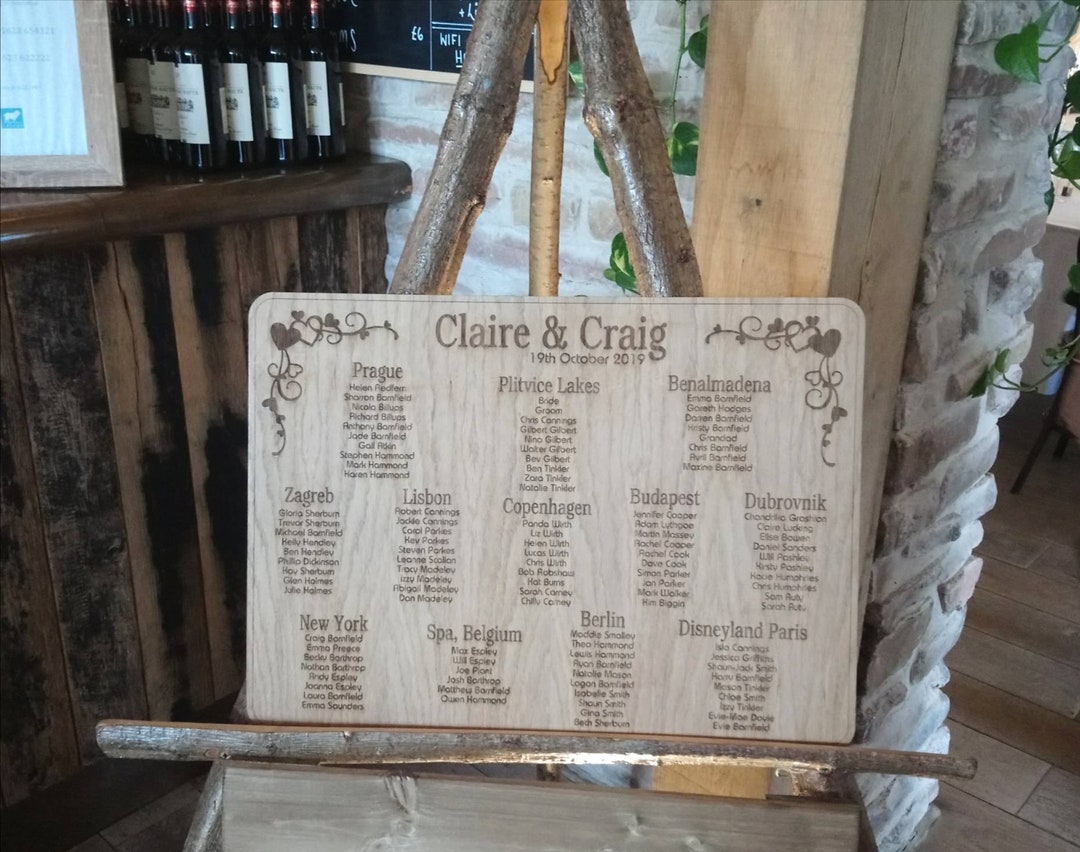 £6
WIFI
Claire & Craig
19th October 2019
Prague
Helen Redfern
Sharron Barnfield
Nicola Billups
Richard Billups
Anthony Barnfield
Jade Barnfield
Gail Atkin
Stephen Hammond
Mark Hammond
Karen Hammond
Plitvice Lakes
Bride
Groom
Chris Cannings
Gilbert Gilbert
Nina Gilbert
Walter Gilbert
Bev Gilbert
Ben Tinkler
Zara Tinkler
Natalie Tinkler
Benalmadena
Emma Barnfield
Gareth Hodges
Darren Barnfield
Kirsty Barnfield
Grandad
Chris Barnfield
Avril Barnfield
Maxine Barnfield
Zagreb
Gloria Sherburn
Trevor Sherburn
Michael Barnfield
Kelly Hendley
Ben Hendley
Phillip Dickinson
Kay Sherburn
Glen Holmes
Julie Holmes
Lisbon
Robert Cannings
Jackie Cannings
Carol Parkes
Kev Parkes
Steven Parkes
Leanne Scallan
Tracy Madeley
Izzy Madeley
Abigail Madeley
Dan Madeley
Copenhagen
Panda Wirth
Liz Wirth
Helen Wirth
Lucas Wirth
Chris Wirth
Bob Robshaw
Kat Burns
Sarah Carney
Chilly Carney
Budapest
Jennifer Cooper
Adam Lythgoe
Martin Massey
Rachel Cooper
Rachel Cook
Dave Cook
Simon Parker
Jan Parker
Mark Walker
Kim Biggin
Dubrovnik
Chandrika Gration
Claire Lucking
Elise Bower
Daniel Sanders
Will Pashley
Kirsty Pashley
Katie Humphries
Chris Humphries
Sam Auty
Sarah Auty
New York
Craig Barnfield
Emma Preece
Becky Barthrop
Nathan Barthrop
Andy Espley
Joanna Espley
Laura Barnfield
Emma Saunders
Spa, Belgium
Max Espley
Will Espley
Joe Plant
Josh Barthrop
Matthew Barnfield
Owen Hammond
Berlin
Maddie Smalley
Theo Hammond
Lewis Hammond
Ryan Barnfield
Natalie Mason
Logan Barnfield
Isabelle Smith
Shaun Smith
Gina Smith
Beth Sherburn
Disneyland Paris
Isla Cannings
Jessica Griffiths
Shaun-Jack Smith
Harry Barnfield
Mason Tinkler
Chloe Smith
Izzy Tinkler
Evie-Mae Davie
Evie Barnfield